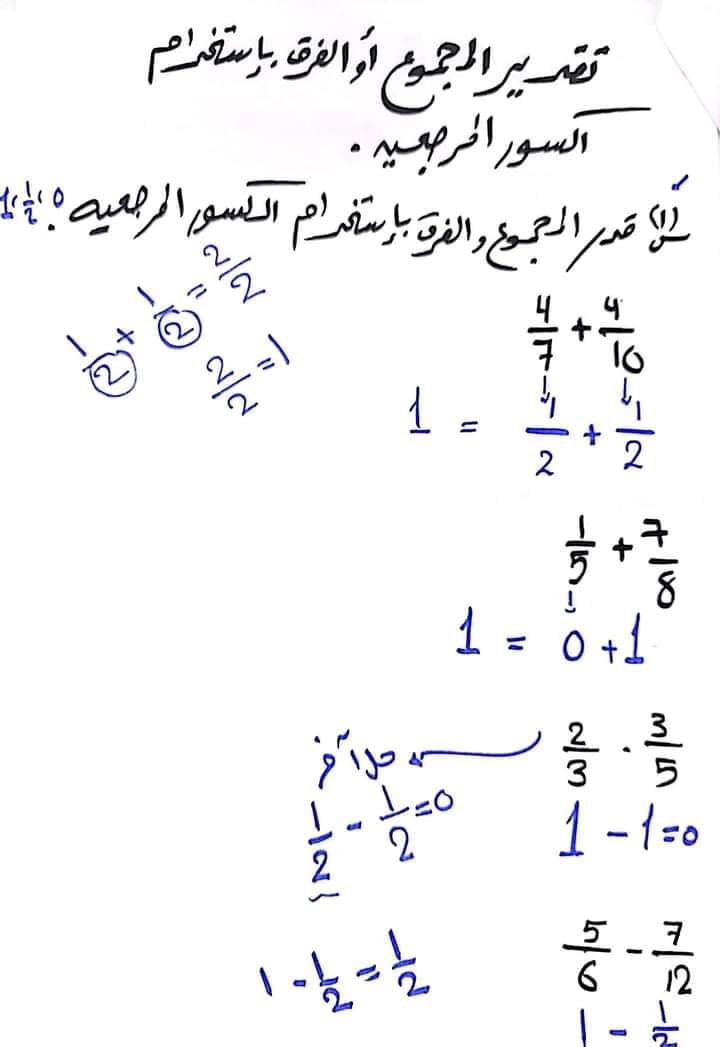 تقدير المجموع أو الفرق بإستخدام
الكسور المرجعيه .
س(١) قدر المجموع والفرق بإستخدام الكسور المرجعيه 0، 1/2، 1
4/7 + 4/10
1/2 + 1/2 = 1
1/2 + 1/2 = 2/2
2/2 = 1
1/5 + 7/8
0 + 1 = 1
2/3 - 3/5
1 - 1 = 0
حل آخر
1/2 - 1/2 = 0
5/6 - 7/12
1 - 1/2
1 - 1/2 = 1/2